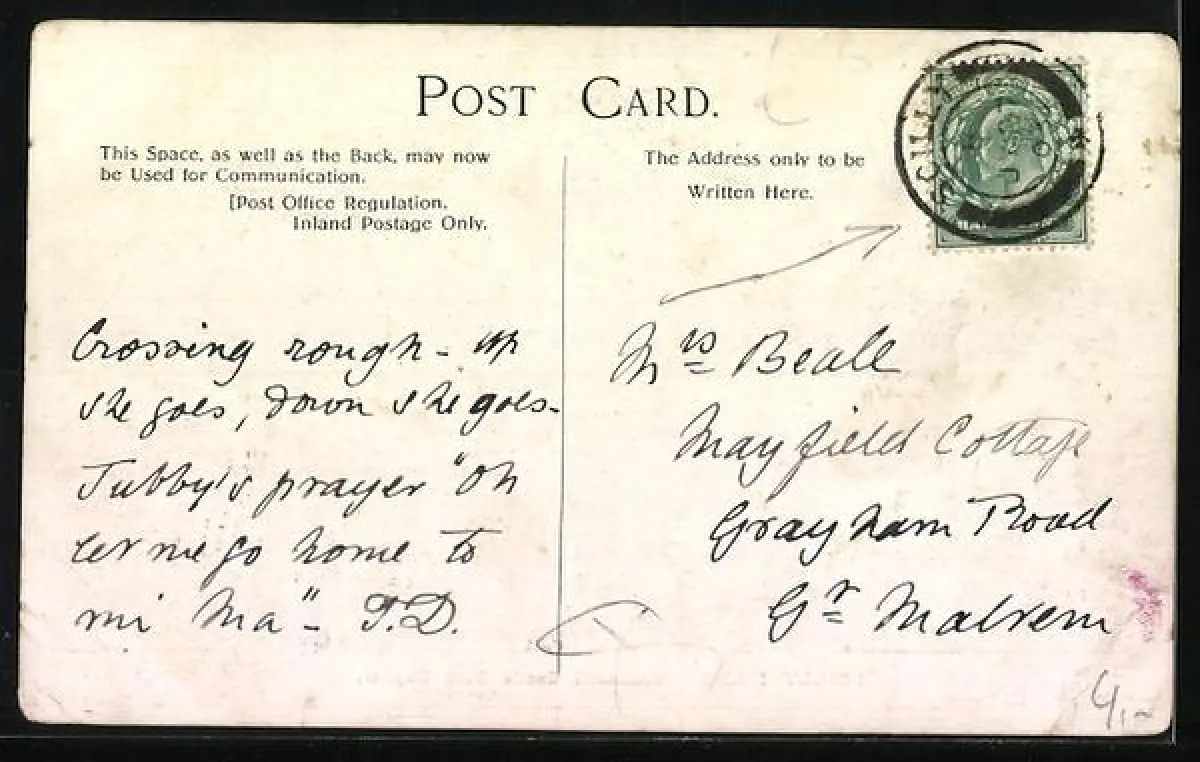 POST CARD.
This Space, as well as the Back, may now
be Used for Communication.
[Post Office Regulation.
Inland Postage Only.
The Address only to be
Written Here.
SCILLY
Crossing rough - up
she goes, down she goes -
Tubby's prayer "Oh
let me go home to
mi Ma" - T.D.
Mrs Beale
Mayfield Cottage
Grayham Road
Gr Malvern
4,-